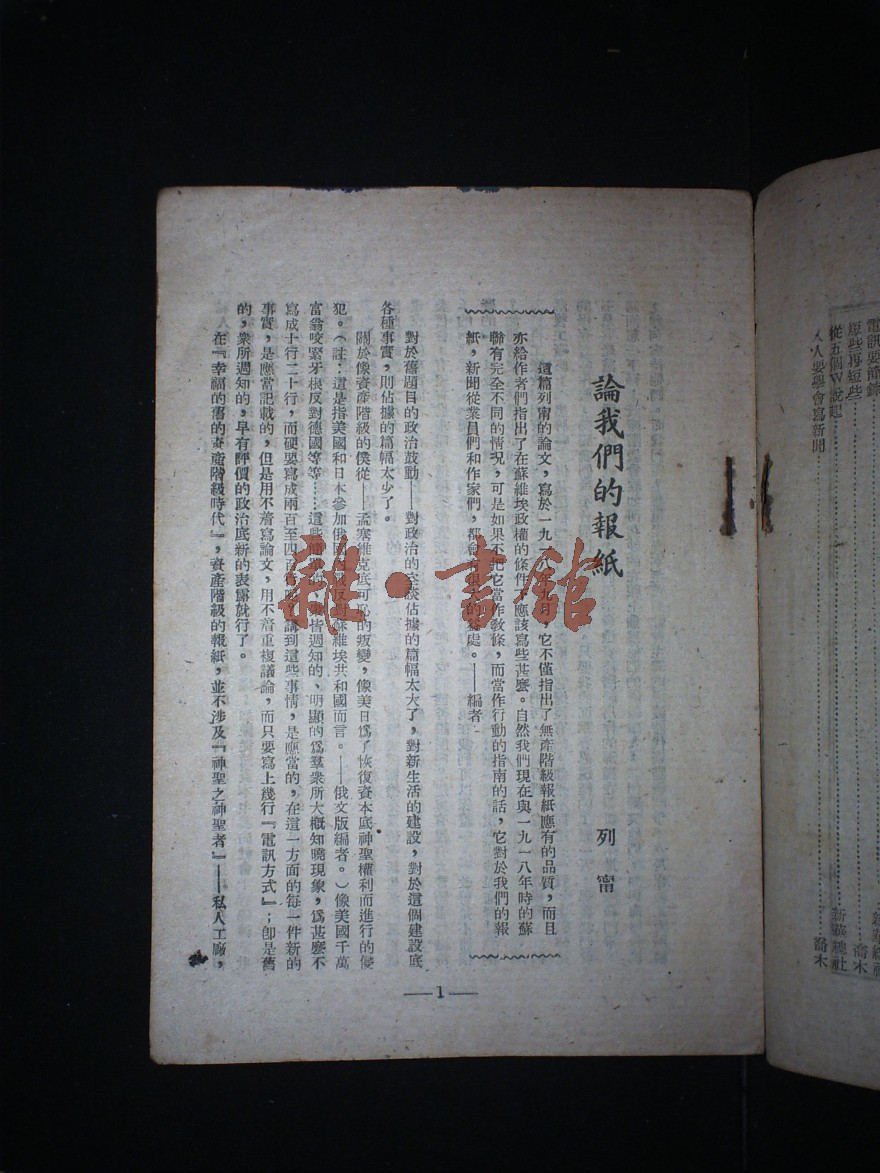 電訊要簡鍊
短些再短些
喬木
從五個W說起
新華總社
人人要學會寫新聞
喬木
論我們的報紙
列甯
這篇列甯的論文，寫於一九一八年九月，它不僅指出了無產階級報紙應有的品質，而且
亦給作者們指出了在蘇維埃政權的條件，應該寫些甚麼。自然我們現在與一九一八年時的蘇
聯有完全不同的情况，可是如果不把它當作教條，而當作行動的指南的話，它對於我們的報
紙，新聞從業員們和作家們，都會有處。——編者
對於舊題目的政治鼓動——對政治的空談佔據的篇幅太大了，對新生活的建設，對於這個建設底
各種事實，則佔據的篇幅太少了。
關於像資產階級的僕從——孟塞維克底可恥的叛變，像美日爲了恢復資本底神聖權利而進行的侵
犯。（註：這是指美國和日本參加俄國反對蘇維埃共和國而言。——俄文版編者。）像美國千萬
富翁咬緊牙根反對德國等等……這些皆週知的、明顯的爲羣衆所大概知曉現象，爲甚麼不
寫成十行二十行，而硬要寫成兩百至四百講到這些事情，是應當的，在這一方面的每一件新的
事實，是應當記載的，但是用不着寫論文，用不着重複議論，而只要寫上幾行『電訊方式』；卽是舊
的，衆所週知的，早有評價的政治底新的表露就行了。
在『幸福的舊的資產階級時代』，資產階級的報紙，並不涉及『神聖之神聖者』——私人工廠，
—1—
雜·書館